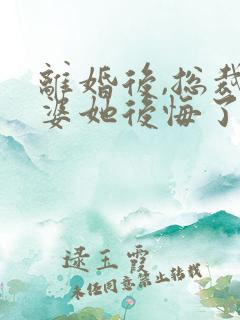 離婚後,總裁
婆她後悔了
逯玉霞
未任同意禁止转载